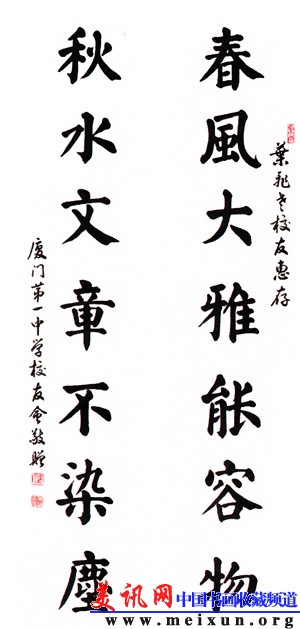 春風大雅能容物
葉飛老校友惠存
秋水文章不染塵
廈门第一中学校友会敬贈
美讯网 中国书画收藏频道
www.meixun.org